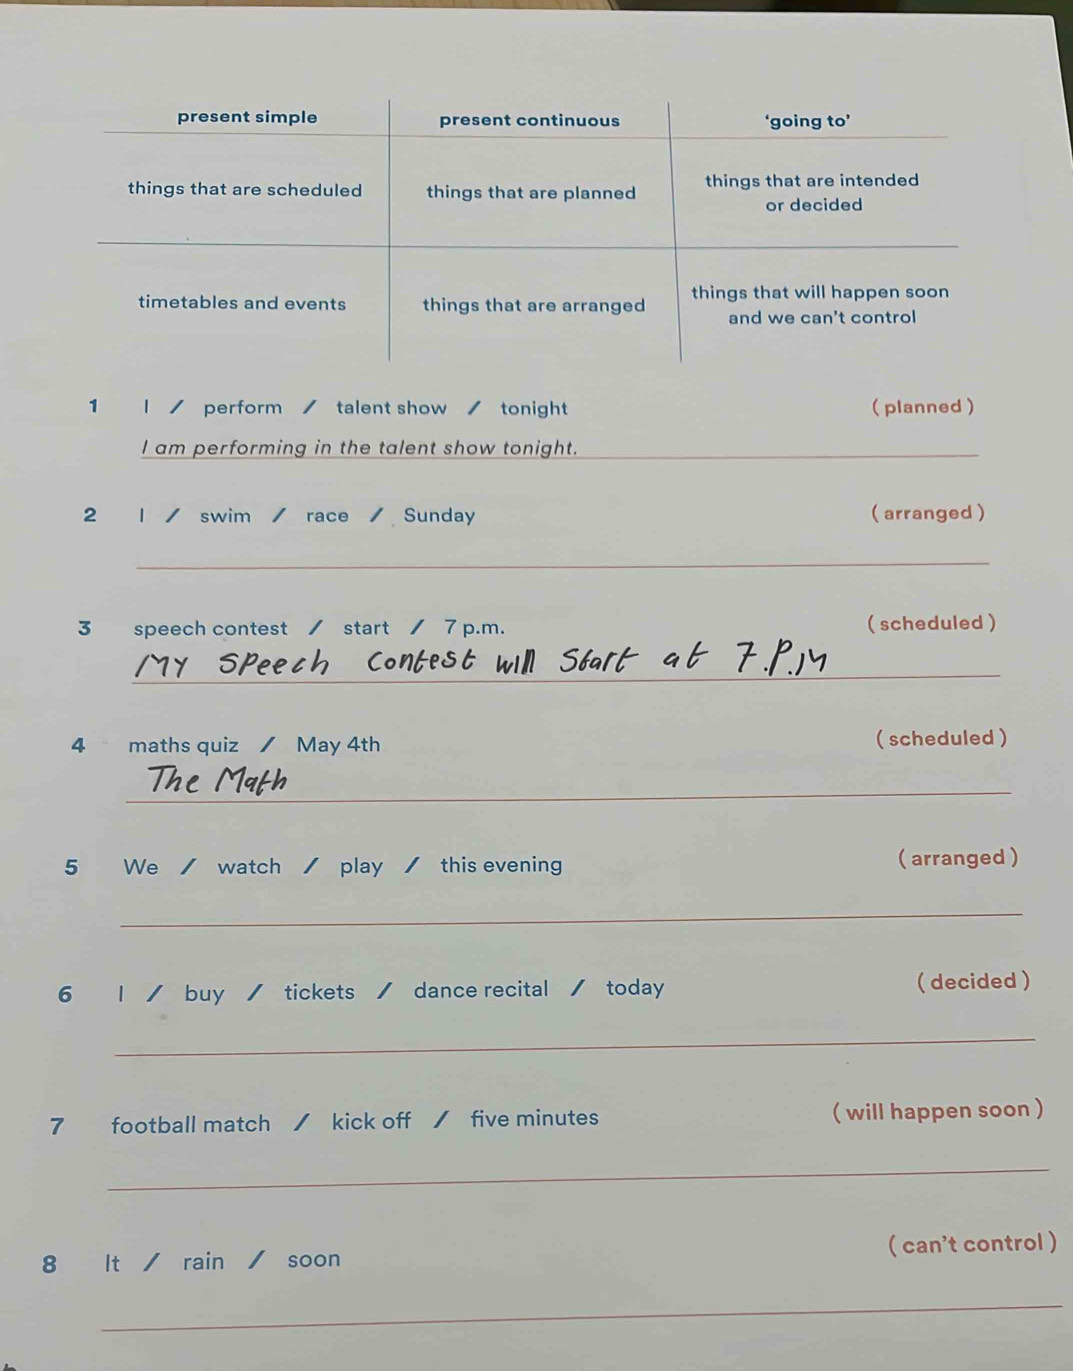 present simple present continuous 'going to'
things that are scheduled things that are planned things that are intended
or decided
timetables and events things that are arranged things that will happen soon
and we can't control
1 I / perform / talent show / tonight (planned)
I am performing in the talent show tonight.
2 I / swim / race / Sunday (arranged)
3 speech contest / start / 7 p.m. (scheduled)
My Speech Contest will Start at 7.P.M
4 maths quiz / May 4th (scheduled)
The Math
5 We / watch / play / this evening (arranged)
6 I / buy / tickets / dance recital / today (decided)
7 football match / kick off / five minutes (will happen soon)
8 It / rain / soon (can't control)